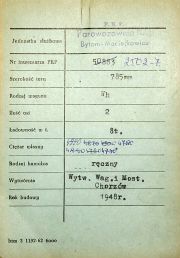 P.K.P.
Jednostka służbowa Parowozownia
Bytom-Maciejkowice
Nr inwentarza PKP 2102-7
Szerokość toru 785mm
Rodzaj wagonu
Ilość osi 2
Ładowność w t. 8t.
Ciężar własny
Rodzaj hamulca ręczny
Wytwórnia Wytw. Wag. i Most.
Chorzów
Rok budowy 1948r.